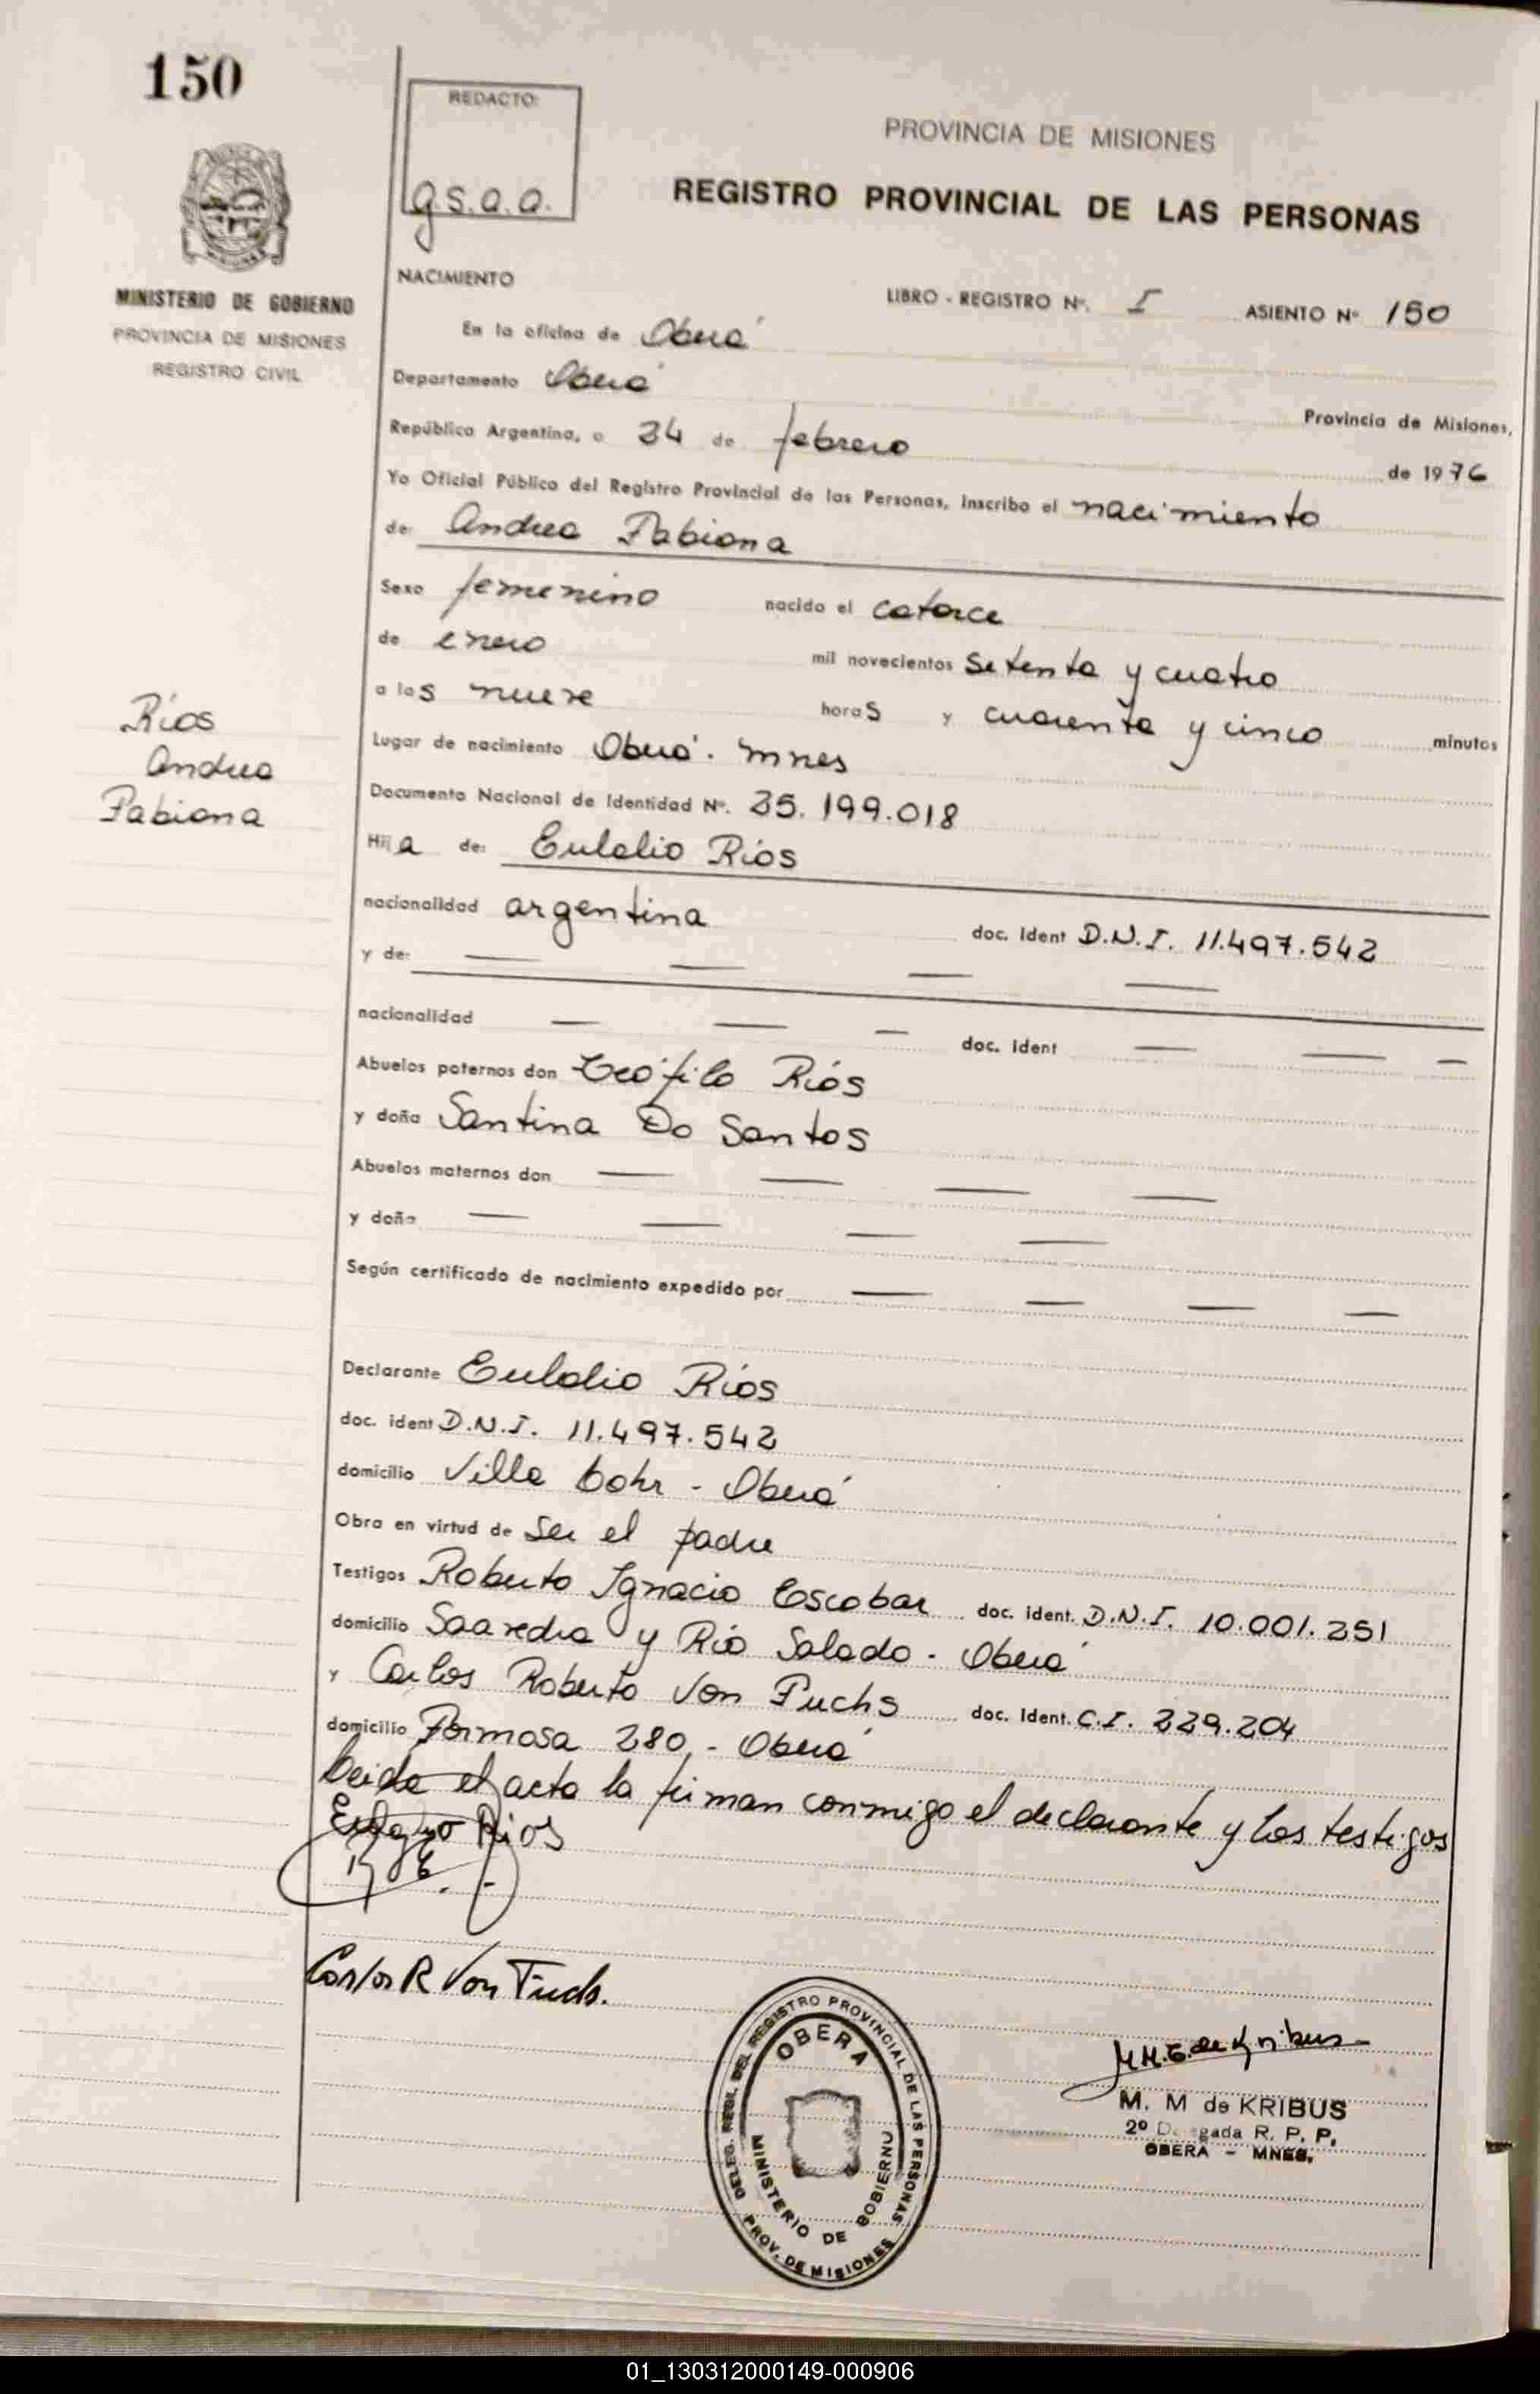 150
REDACTO:
g.s.a.a.
PROVINCIA DE MISIONES
REGISTRO PROVINCIAL DE LAS PERSONAS
MINISTERIO DE GOBIERNO
PROVINCIA DE MISIONES
REGISTRO CIVIL
NACIMIENTO
LIBRO - REGISTRO Nº. I ASIENTO Nº 150
En la oficina de Oberá
Departamento Oberá Provincia de Misiones,
República Argentina, a 24 de febrero de 1976
Yo Oficial Público del Registro Provincial de las Personas, inscribo el nacimiento
de: Andrea Fabiana
Sexo femenino nacido el catorce
de enero mil novecientos setenta y cuatro
a las nueve horas y cuarenta y cinco minutos
Ríos
Andrea
Fabiana
Lugar de nacimiento Oberá. Mnes
Documento Nacional de Identidad Nº. 25.199.018
Hija de: Eulalio Ríos
nacionalidad argentina doc. ident D.N.I. 11.497.542
y de: — — — —
nacionalidad — — — doc. ident — — —
Abuelos paternos don Teófilo Ríos
y doña Santina Do Santos
Abuelos maternos don — — — —
y doña — — — —
Según certificado de nacimiento expedido por — — — —
Declarante Eulalio Ríos
doc. ident D.N.I. 11.497.542
domicilio Villa Bohr - Oberá
Obra en virtud de ser el padre
Testigos Roberto Ignacio Escobar doc. ident. D.N.I. 10.001.251
domicilio Saavedra y Río Salado - Oberá
y Carlos Roberto Von Fuchs doc. ident. C.I. 229.204
domicilio Formosa 280 - Oberá
Leida el acta la firman conmigo el declarante y los testigos
Rios
Carlos R Von Fuchs.
M.M.E. de Kribus
M. M de KRIBUS
2º Delegada R. P. P.
OBERA - MNES.
DELEG. REGL. DEL REGISTRO PROVINCIAL DE LAS PERSONAS
OBERA
MINISTERIO DE GOBIERNO
PROV. DE MISIONES
01_130312000149-000906